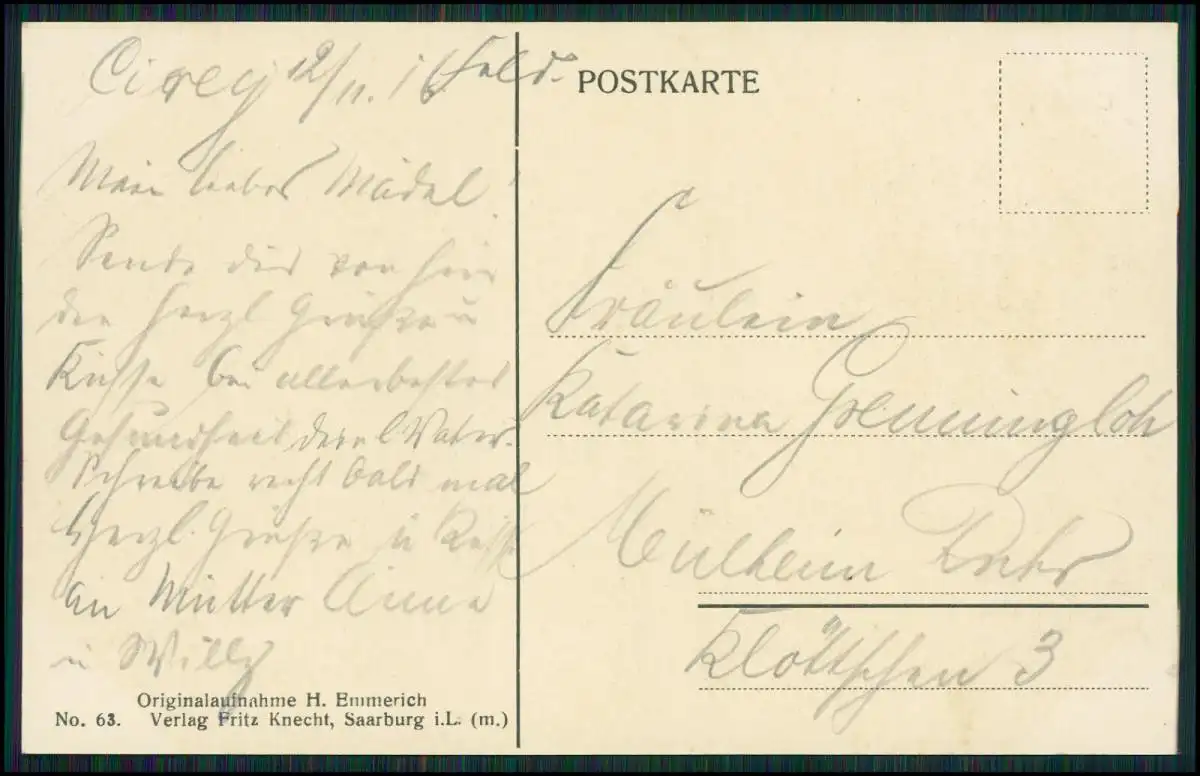 Cirey 12/11. 16
Mein liebes Mädel!
Sende dir von hier
die herzl Grüße u
Küsse bei allerbester
Gesundheit dein l Vater.
Schreibe recht bald mal
Herzl. Grüße u Küsse
an Mutter Anna
u Willy
Originalaufnahme H. Emmerich
No. 63. Verlag Fritz Knecht, Saarburg i.L. (m.)
Feld-
POSTKARTE
Fräulein
Katarina Gremmingloh
Mülheim Ruhr
Klöttschen 3